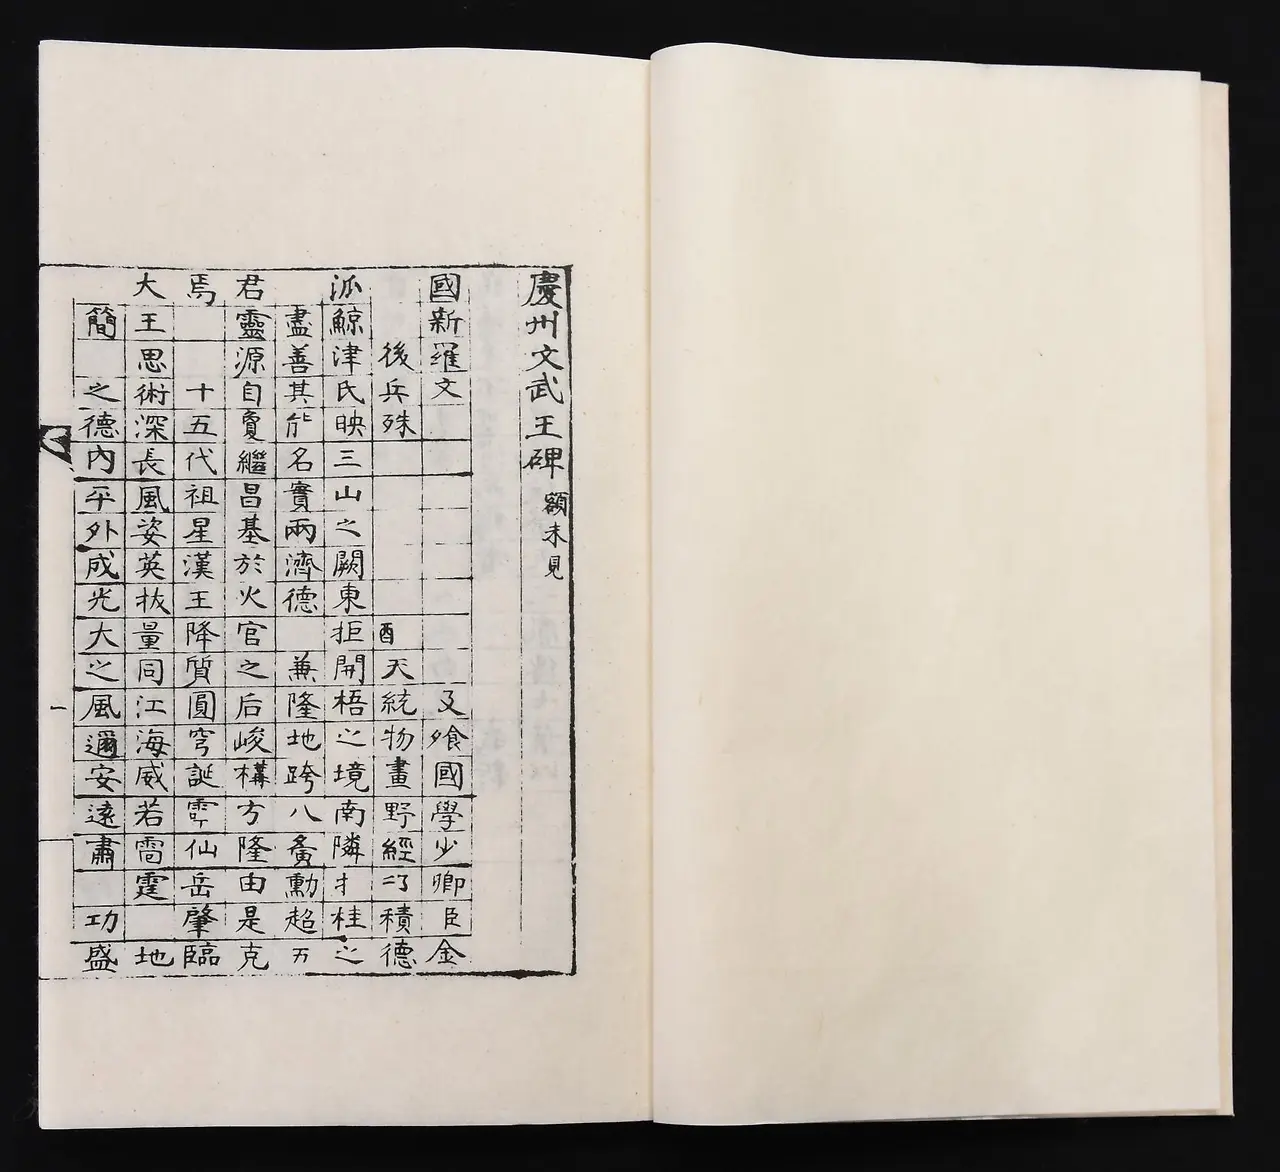 慶州文武王碑 額未見
國新羅文 及飡國學少卿臣金
後兵殊 酉 天統物畫野經 積德
派鯨津氏映三山之闕東拒開梧之境南隣 桂之
盡善其能名實兩濟德 兼隆地跨八夤勳超
君靈源自敻繼昌基於火官之后峻構方隆由是克
焉 十五代祖星漢王降質圓穹誕 仙岳肇臨
大王思術深長風姿英拔量同江海威若雷霆 地
簡 之德內平外成光大之風邇安遠肅 功盛
一